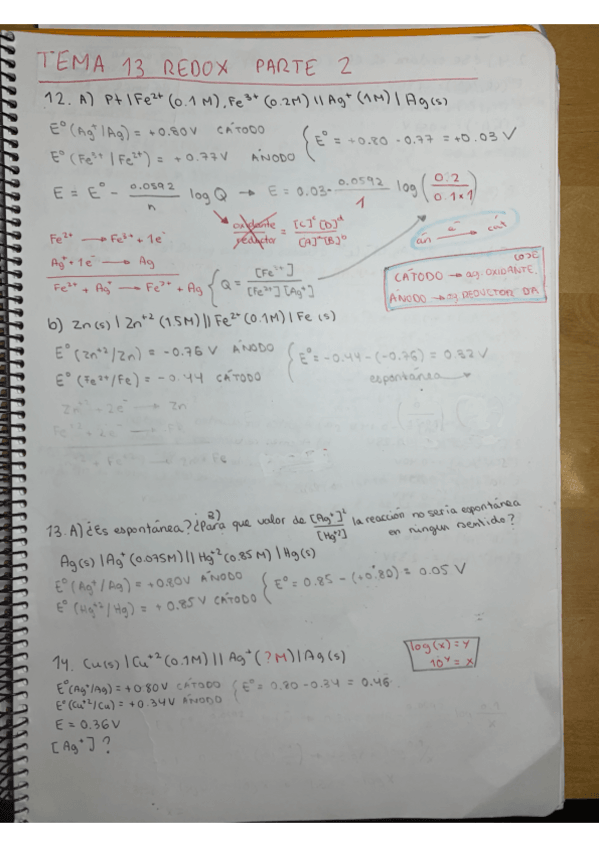 TEMA 13 REDOX PARTE 2
12. A) Pt | Fe²⁺ (0.1 M), Fe³⁺ (0.2M) || Ag⁺ (1M) | Ag(s)
E⁰(Ag⁺/Ag) = +0.80V CÁTODO
E⁰(Fe³⁺ | Fe²⁺) = +0.77V ÁNODO
E⁰ = +0.80 - 0.77 = +0.03 V
E = E⁰ - 0.0592/n log Q → E = 0.03 - 0.0592/1 log (0.2/0.1×1)
oxidante/reductor = [C]ᶜ[D]ᵈ/[A]ᵃ[B]ᵇ
Fe²⁺ → Fe³⁺ + 1e⁻
Ag⁺ + 1e⁻ → Ag
Fe²⁺ + Ag⁺ → Fe³⁺ + Ag
Q = [Fe³⁺]/[Fe²⁺][Ag⁺]
an e⁻ → cat
CÁTODO → ag. OXIDANTE.
ÁNODO → ag. REDUCTOR DA
b) Zn(s) | Zn⁺² (1.5M) || Fe²⁺ (0.1M) | Fe (s)
E⁰ (Zn⁺²/Zn) = -0.76V ÁNODO
E⁰ (Fe²⁺/Fe) = -0.44 CÁTODO
E⁰ = -0.44 - (-0.76) = 0.32 V
espontánea
13. A) ¿Es espontánea? a) ¿Para que valor de [Ag⁺]²/[Hg⁺²] la reacción no seria espontánea
en ningun sentido?
Ag(s) | Ag⁺ (0.075M) || Hg⁺² (0.85M) | Hg(s)
E⁰ (Ag⁺/Ag) = +0.80V ÁNODO
E⁰ (Hg⁺²/Hg) = +0.85V CÁTODO
E⁰ = 0.85 - (+0.80) = 0.05 V
14. Cu(s) | Cu⁺² (0.1M) || Ag⁺ (?M) | Ag(s)
log(x) = y
10ʸ = x
E⁰(Ag⁺/Ag) = +0.80V CÁTODO
E⁰(Cu⁺²/Cu) = +0.34V ÁNODO
E⁰ = 0.80 - 0.34 = 0.46.
E = 0.36V
[Ag⁺] ?